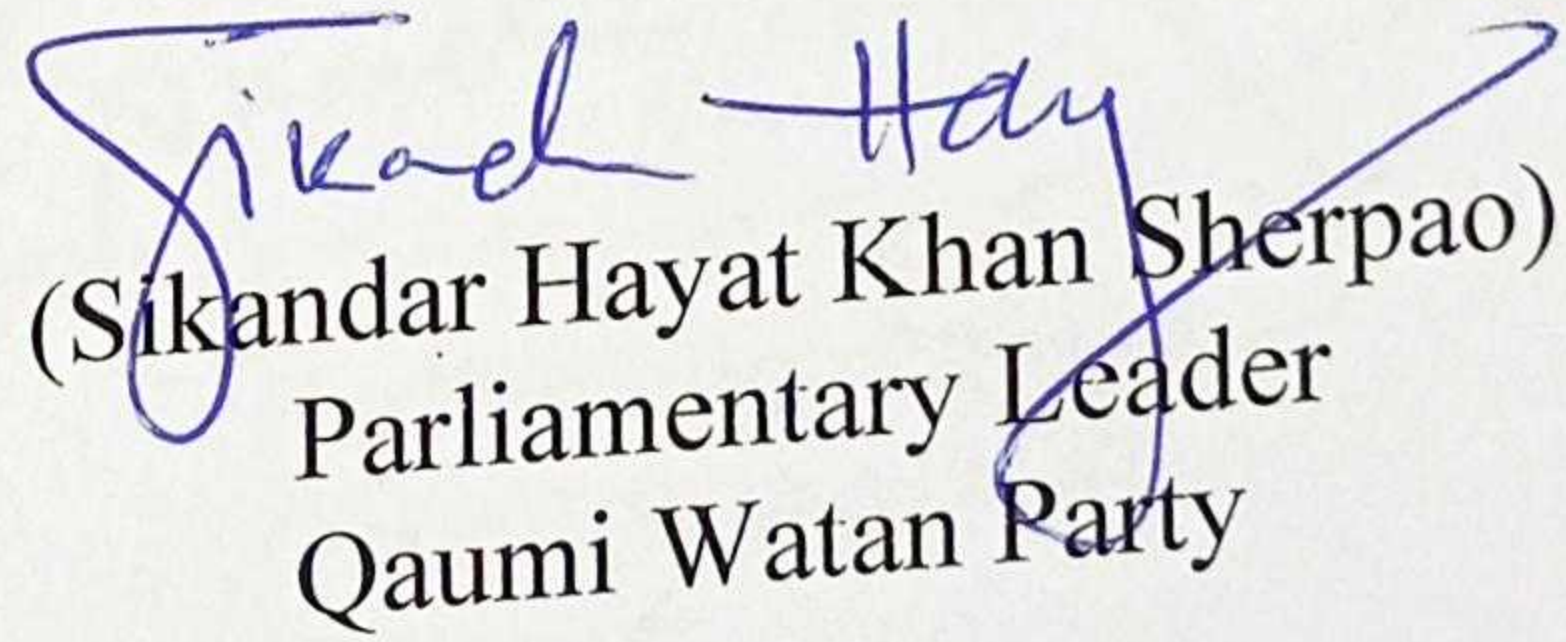 Sikandar Hayat
(Sikandar Hayat Khan Sherpao)
Parliamentary Leader
Qaumi Watan Party